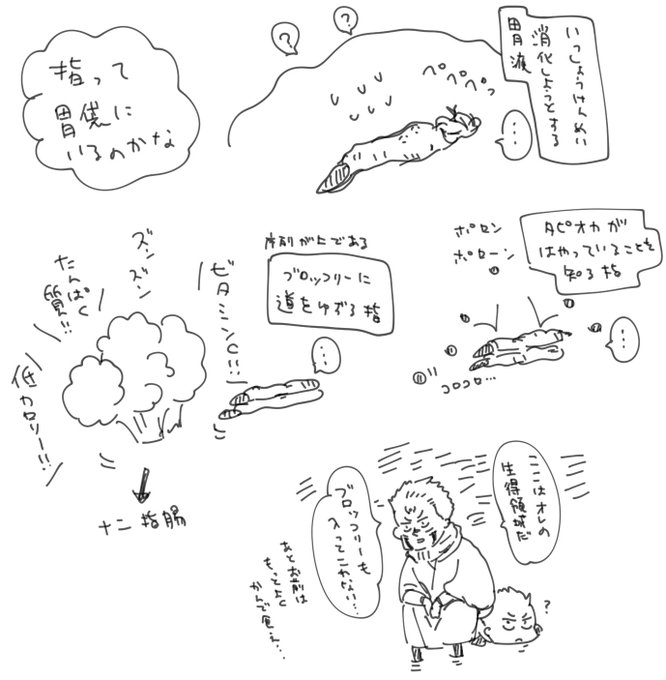 指って
胃袋に
いるのかな
?
?
ペペペっ
いっしょうけんめい
消化しようとする
胃液
…
ズンズン
たんぱく
質!!
低カロリー!!
ビタミンC!!
序列が上である
ブロッコリーに
道をゆずる指
…
十二指腸
ポロン
ポローン
タピオカが
はやっていることを
知る指
…
コロコロ…
ここはオレの
生得領域だ
ブロッコリーも
入ってこれない…
あとお前は
もっとよく
かんで食え…
?